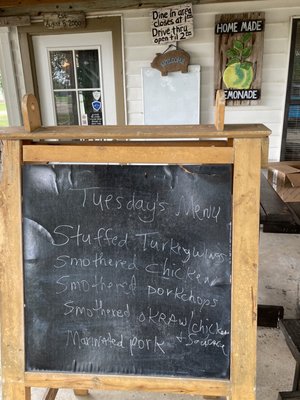 August 5, 2000
Dine In area
closes at 1st
Drive thru's
open til 2nd
WELCOME
HOME MADE
LEMONADE
Tuesday's Menu
Stuffed Turkey wings
Smothered Chicken
Smothered porkchops
Smothered OKRA w/chicken
+ Sausage
Marinated pork